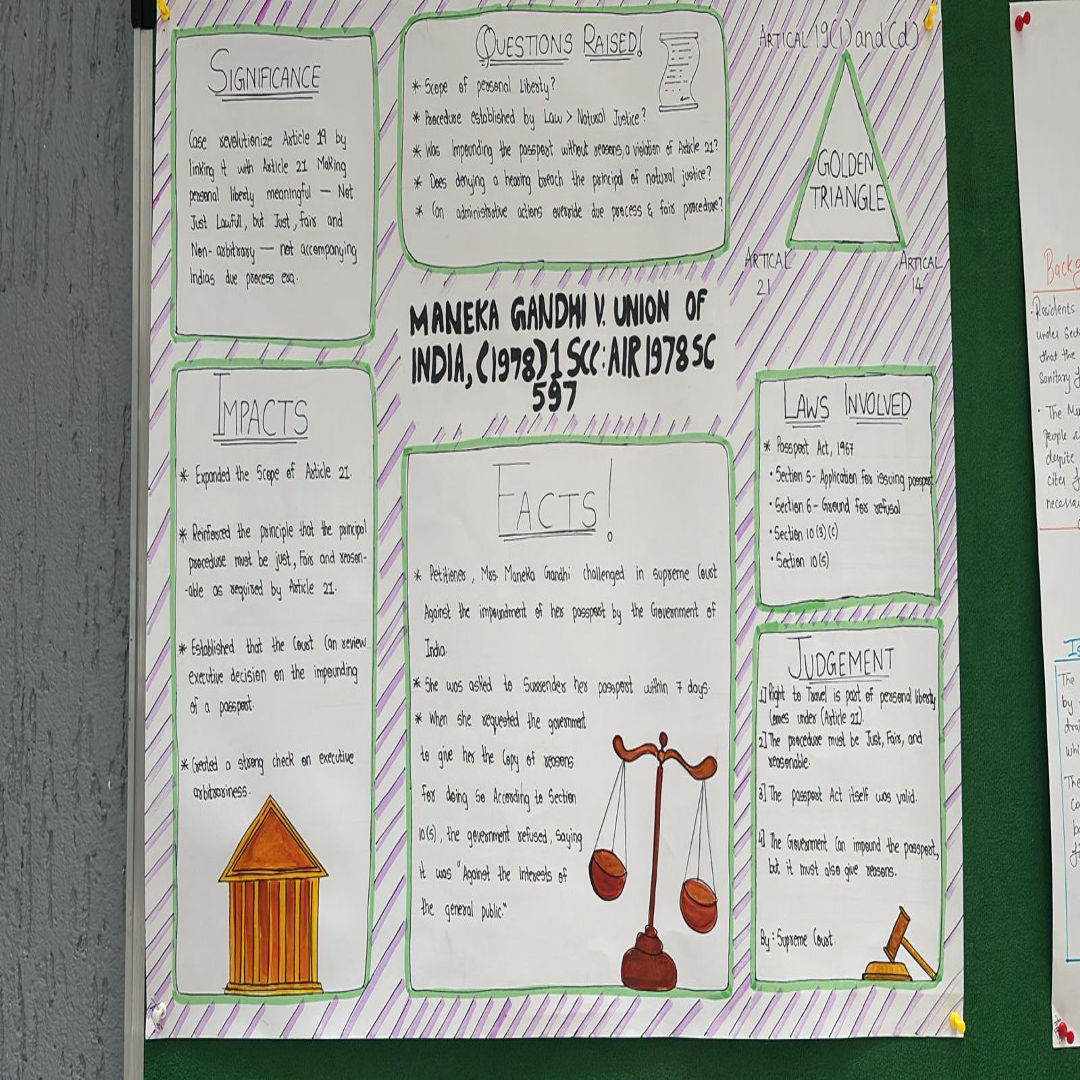 SIGNIFICANCE
Case revolutionize Article 19 by
linking it with Article 21 Making
personal liberty meaningful — Not
Just Lawful, but Just, fair and
Non-arbitrary — not accompanying
Indias due process era.
QUESTIONS RAISED!
* Scope of personal Liberty?
* Procedure established by Law > Natural Justice?
* Was Impounding the passport without reasons, a violation of Article 21?
* Does denying a hearing breach the principal of natural justice?
* Can administrative actions override due process & fair procedure?
ARTICAL 19(1) and (d)
GOLDEN
TRIANGLE
ARTICAL
21
ARTICAL
14
MANEKA GANDHI V. UNION OF
INDIA, (1978) 1 SCC: AIR 1978 SC
597
IMPACTS
* Expanded the Scope of Article 21.
* Reinforced the principle that the principal
procedure must be just, Fair and reason-
-able as required by Article 21.
* Established that the Court Can review
executive decision on the impounding
of a passport.
* Created a strong check on executive
arbitrariness.
FACTS!
* Petitioner, Mrs. Maneka Gandhi challenged in supreme Court
Against the impoundment of her passport by the Government of
India.
* She was asked to Surrender her passport within 7 days.
* When she requested the government
to give her the Copy of reasons
For doing so According to Section
10(5), the government refused, Saying
it was "Against the Interests of
the general public."
LAWS INVOLVED
* Passport Act, 1967
• Section 5- Application for issuing passport
• Section 6 - Ground for refusal
• Section 10(3)(c)
• Section 10(5)
JUDGEMENT
1] Right to Travel is part of personal liberty
Comes under (Article 21).
2] The procedure must be Just, Fair, and
reasonable.
3] The passport Act itself was valid.
4] The Government Can impound the passport,
but it must also give reasons.
By: Supreme Court.
• Residents
under Sect
that the
Sanitary
• The
people
despite
cites
necessa
The
by
The